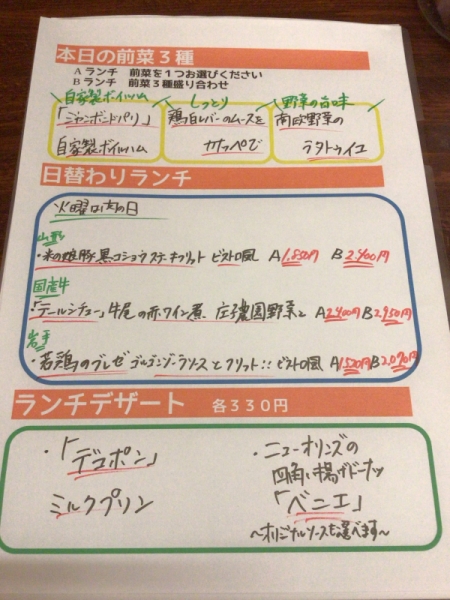 本日の前菜3種
Aランチ 前菜を1つお選びください
Bランチ 前菜3種盛り合わせ
自家製ボイルハム しっとり 野菜の旨味
「ジャンボンドパリ」 鶏白レバーのムースを 南欧野菜の
自家製ボイルハム カナッペで ラタトゥイユ
日替わりランチ
火曜は肉の日
山形
・米の娘豚 黒コショウステーキフリット ビストロ風 A1,850円 B2,400円
国産牛
・「テールシチュー」牛尾の赤ワイン煮 庄子農園野菜と A2,400円 B2,950円
岩手
・若鶏のブレゼ ゴルゴンゾーラソースとフリット!! ビストロ風 A1,520円 B2,070円
ランチデザート 各330円
・「デコポン」
ミルクプリン
・ニューオリンズの
四角い揚げドーナツ
「ベニエ」
〜オリジナルソースを選べます〜